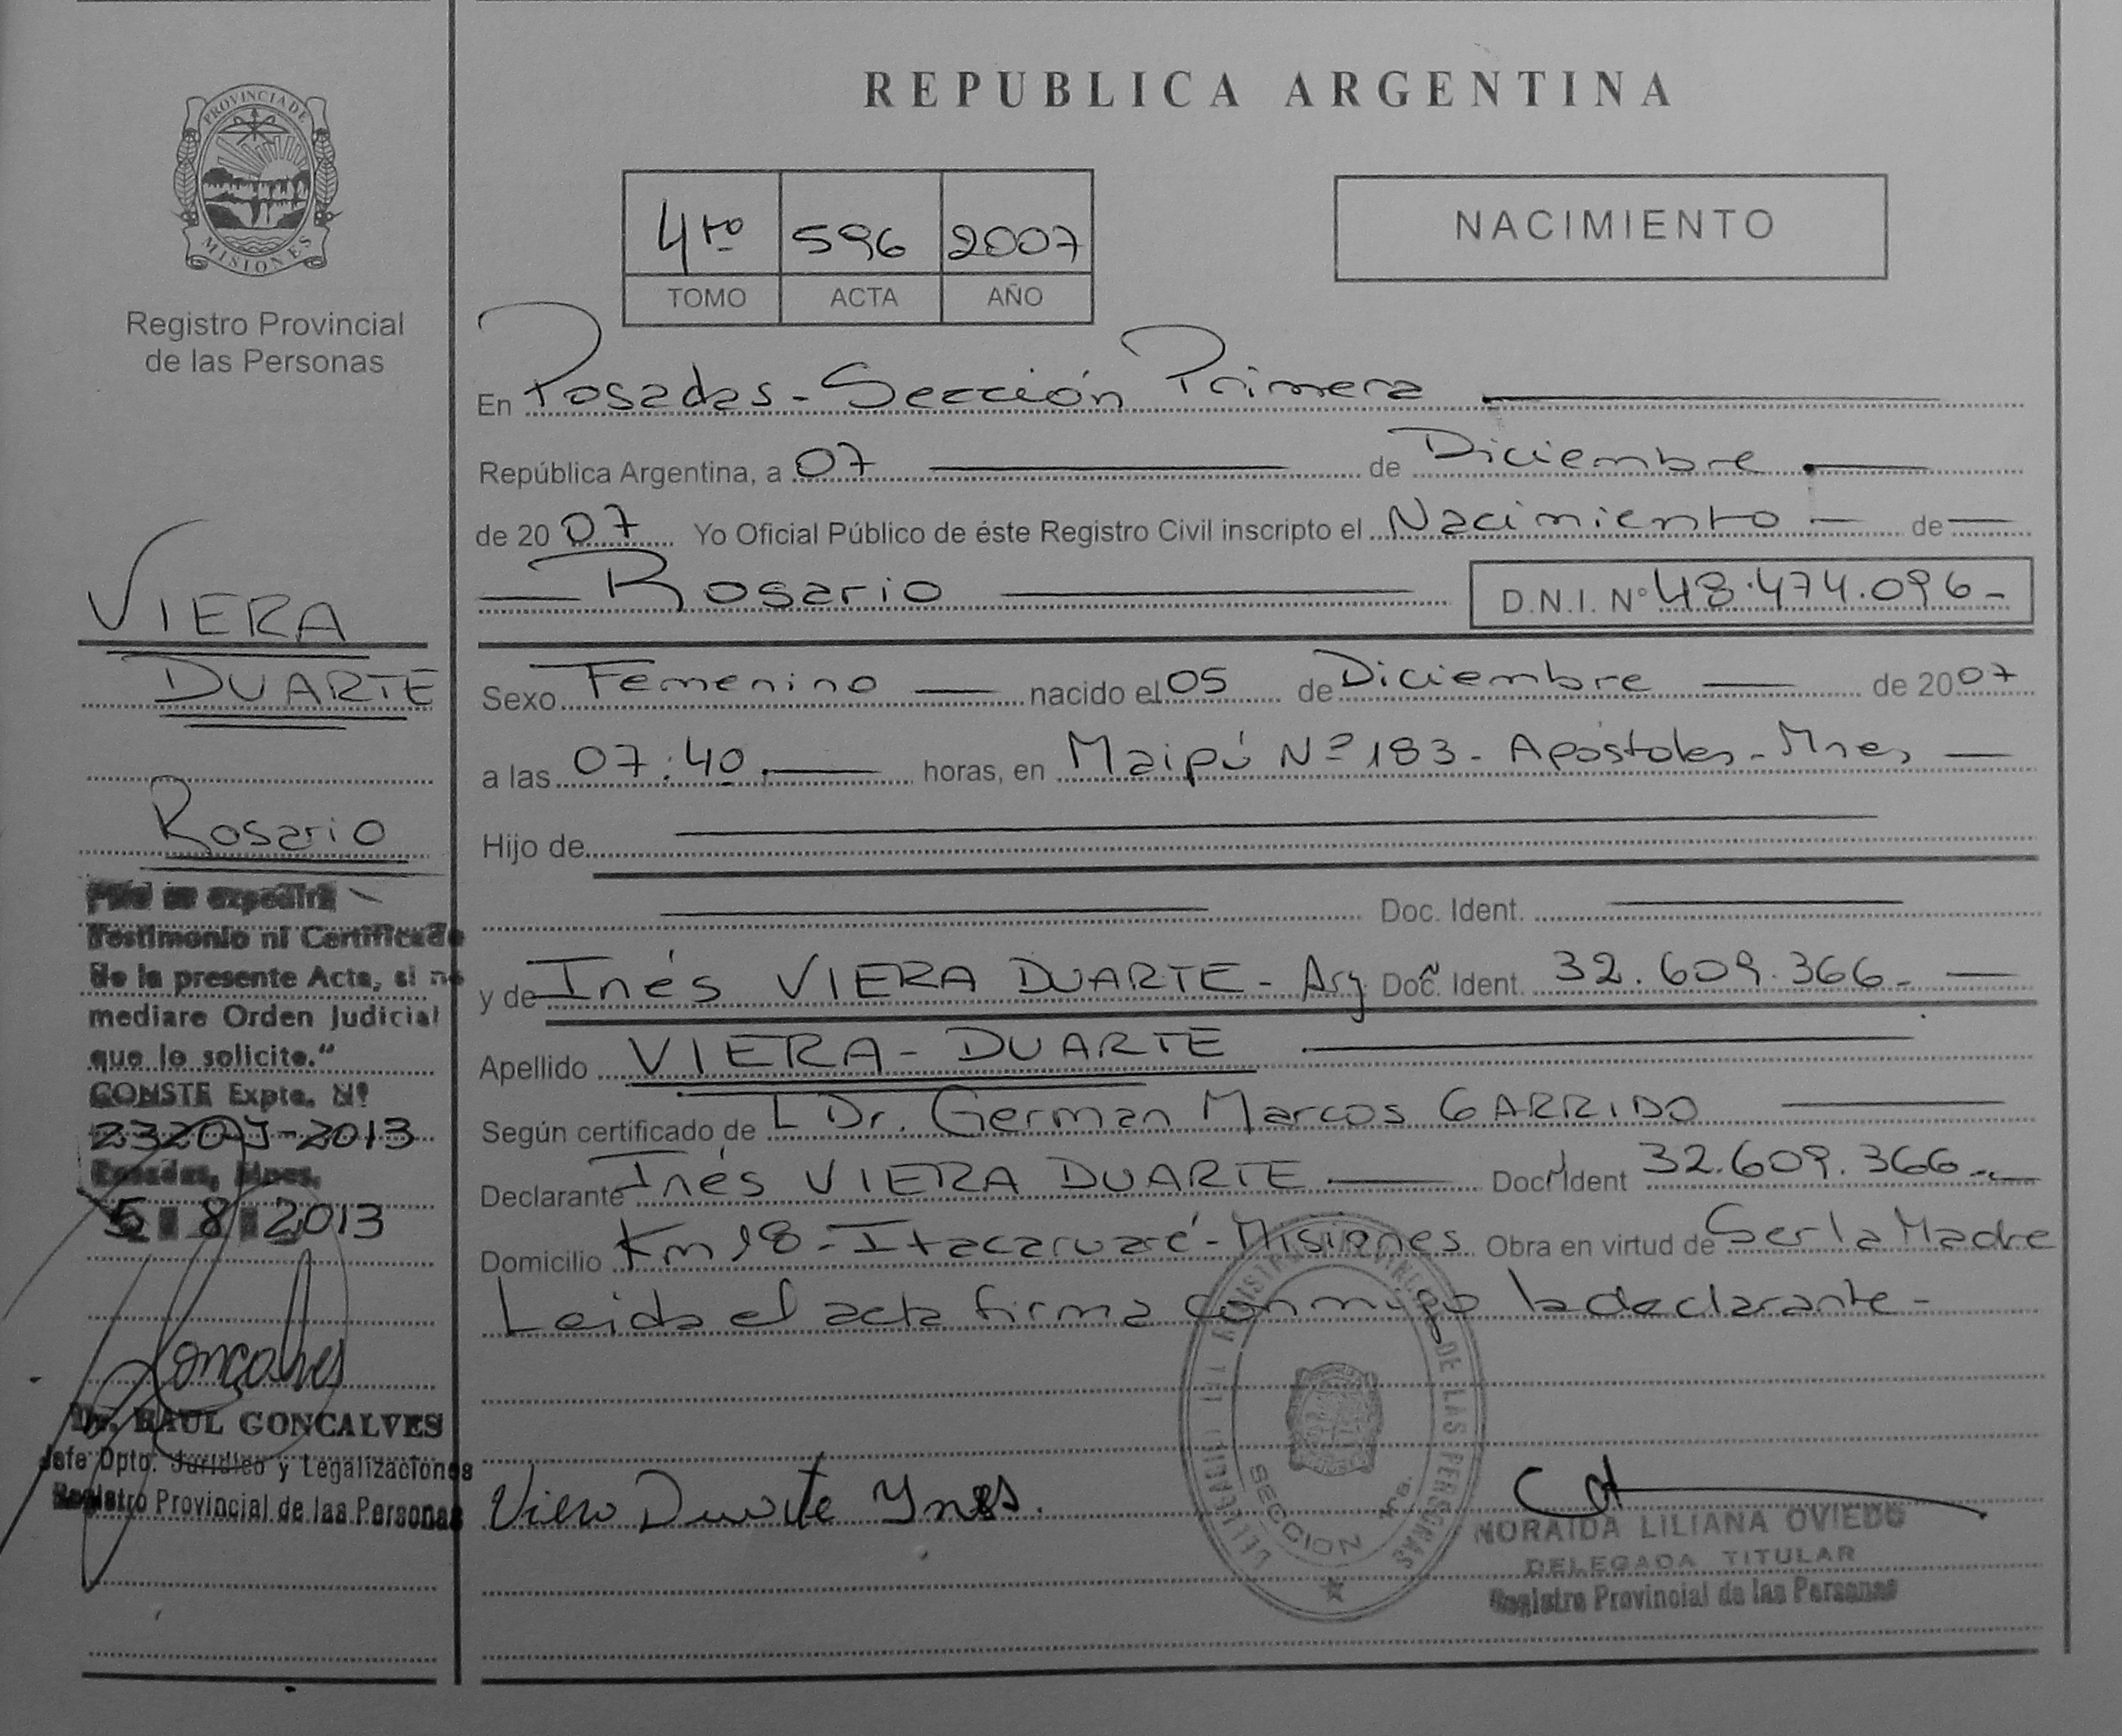 REPUBLICA ARGENTINA
PROVINCIA DE
MISIONES
Registro Provincial
de las Personas
4to 596 2007
TOMO ACTA AÑO
NACIMIENTO
En Posadas - Sección Primera
República Argentina, a 07 de Diciembre
de 2007 Yo Oficial Público de éste Registro Civil inscripto el Nacimiento de
Rosario D.N.I. Nº 48.474.096-
Sexo Femenino nacido el 05 de Diciembre de 2007
a las 07:40 horas, en Maipú Nº 183 - Apóstoles - Mnes
Hijo de
Doc. Ident.
y de Inés VIERA DUARTE - Arg Doc. Ident. 32.609.366-
Apellido VIERA - DUARTE
Según certificado de L Dr. German Marcos GARRIDO
Declarante Inés VIERA DUARTE Doc Ident 32.609.366-
Domicilio Km 18 - Itacaruaré - Misiones Obra en virtud de Ser la Madre
Leida el acta firma conmigo la declarante -
VIERA
DUARTE
Rosario
se expedirá
Testimonio ni Certificado
de la presente Acta, si no
mediare Orden Judicial
que lo solicite."
CONSTE Expte. Nº
-2013
Posadas, Mnes.
5 8 2013
Goncalves
Dr. RAUL GONCALVES
Jefe Dpto. Jurídico y Legalizaciones
Registro Provincial de las Personas
Viera Duarte Ynes.
DE LAS PERSONAS
SECCION 1ra.
NORAIDA LILIANA OVIEDO
DELEGADA TITULAR
Registro Provincial de las Personas